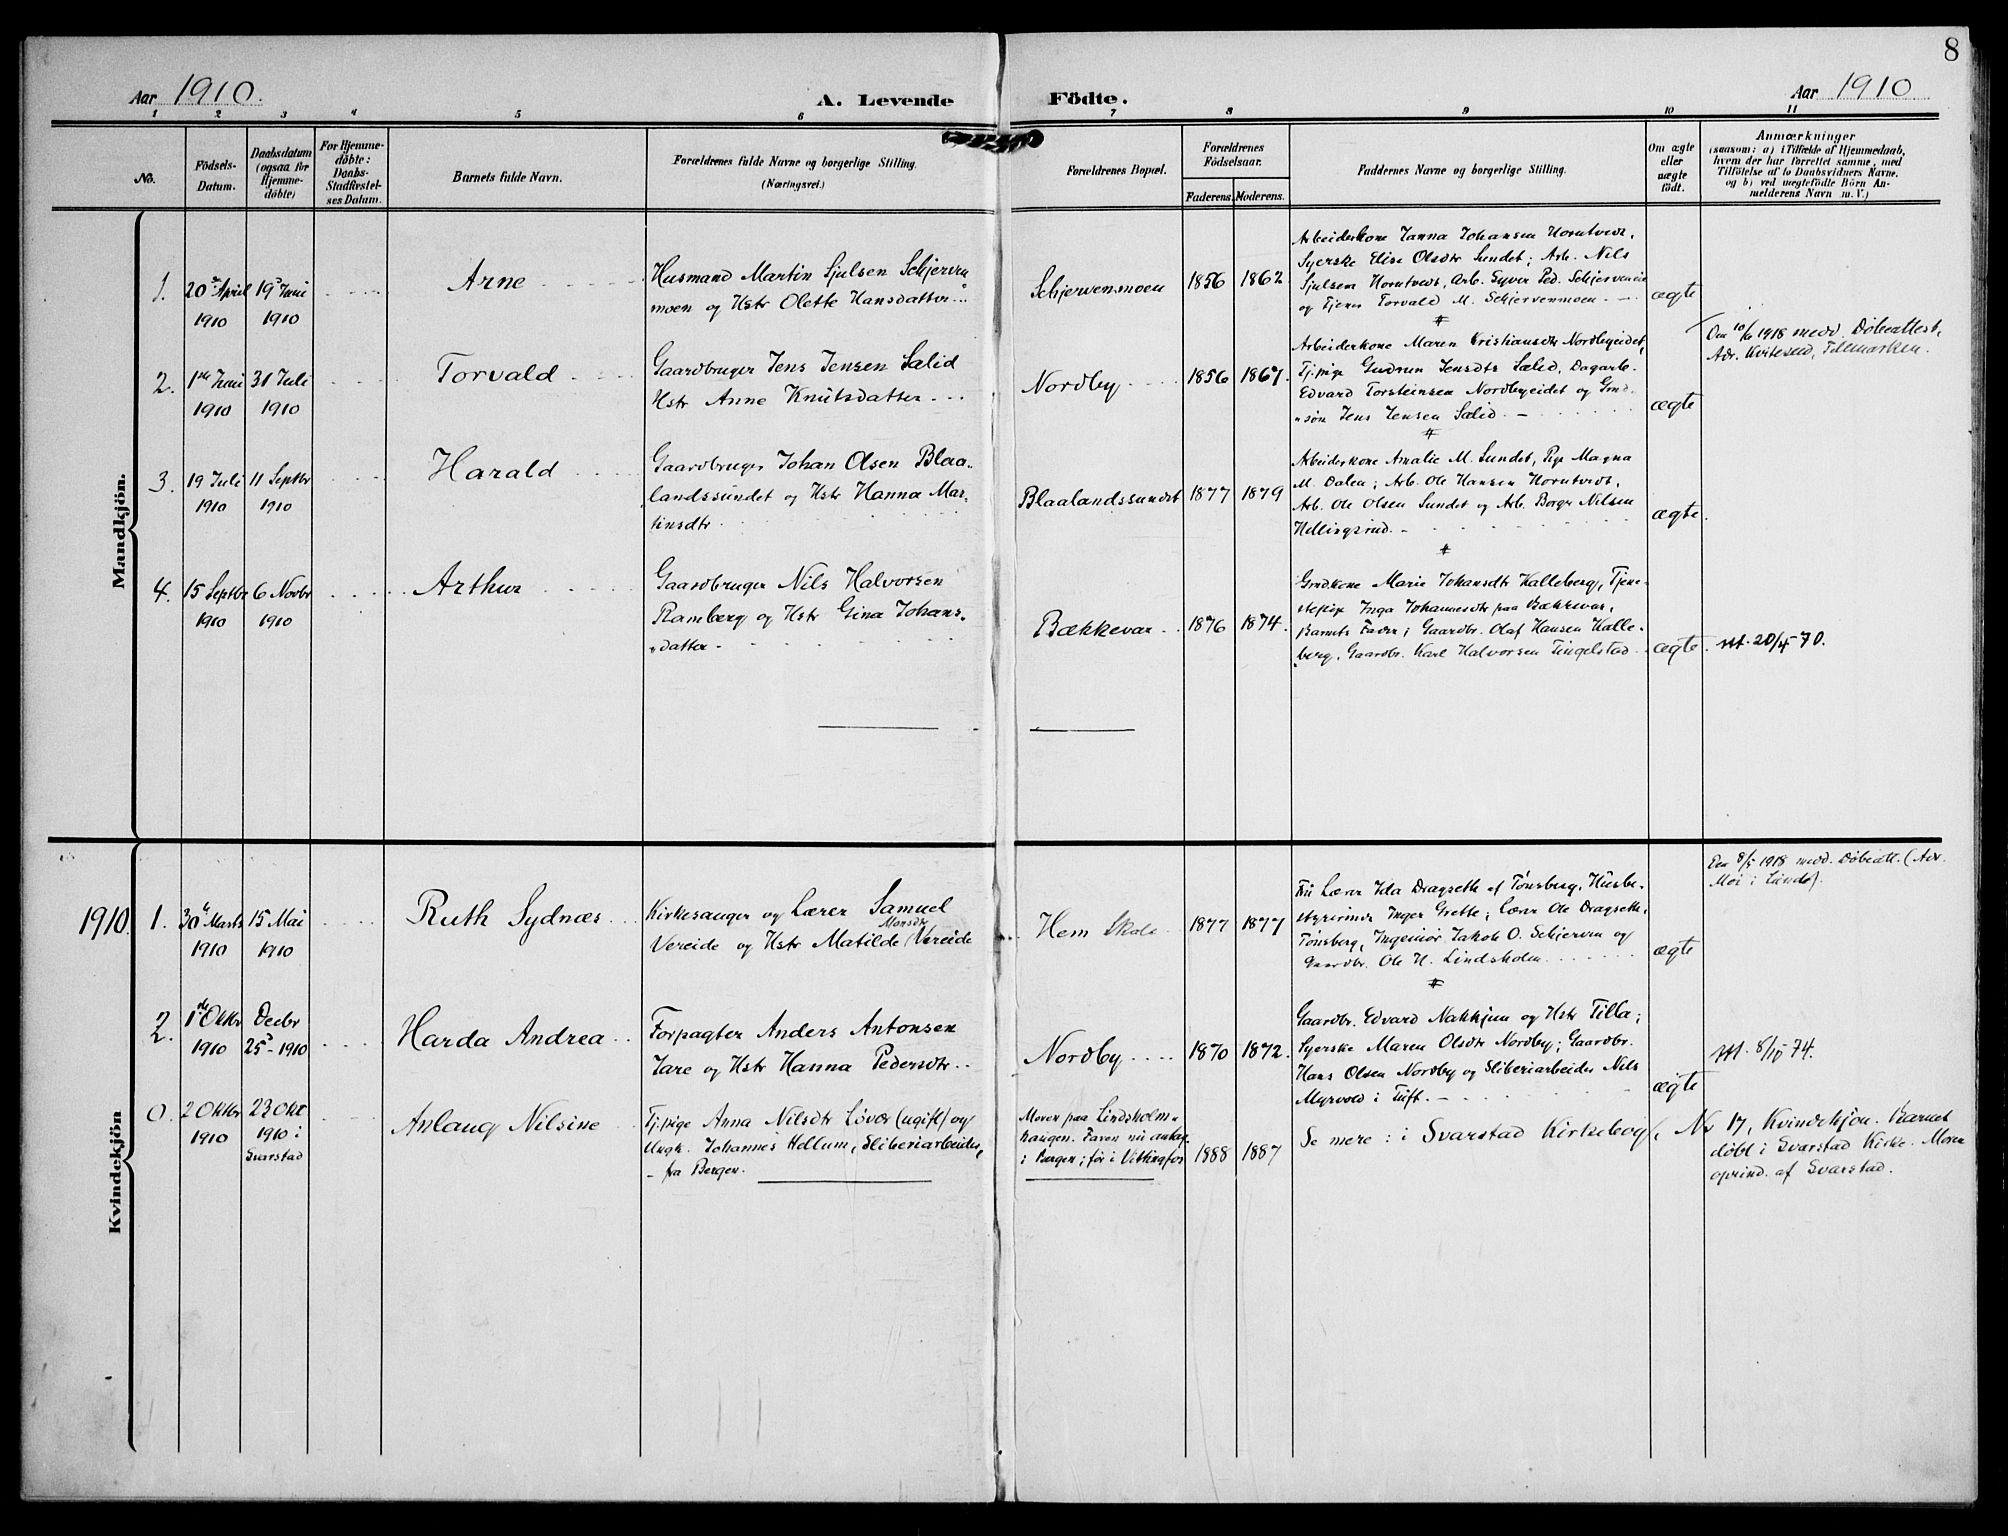 8
Aar 1910.
A. Levende
Födte.
Aar 1910
1 2 3 4 5 6 7 8 9 10 11
No.
Födsels-
Datum.
Daabsdatum
(ogsaa for
Hjemme-
döbte)
For Hjemme-
döbte:
Daabs-
Stadfæstel-
ses Datum.
Barnets fulde Navn.
Forældrenes fulde Navne og borgerlige Stilling.
(Næringsvei.)
Forældrenes Bopæl.
Forældrenes
Födselsaar.
Faderens. Moderens.
Faddernes Navne og borgerlige Stilling.
Om ægte
eller
uægte
födt.
Anmærkninger
(saasom: a) i Tilfælde af Hjemmedaab,
hvem der har forrettet samme, med
Tilföielse af to Daabsvidners Navne.
og b) ved uægtefödte Börn An-
melderens Navn m. V.)
Mandkjön.
1.
20de April
1910
19de Juni
1910
Arne
Husmand Martin Sjulsen Schjerven
moen og Hstr Olette Hansdatter
Schjervenmoen
1856
1862
Arbeiderkone Janna Johansen Horntvedt,
Syerske Elise Olsdtr Sundet; Arb. Nils
Sjulsen Horntvedt, Arb. Syver Ped. Schjerven
og Tjener Torvald M. Schjervenmoen.
ægte
2.
1ste Juni
1910
31 Juli
1910
Torvald
Gaardbruger Jens Jensen Sælid
Hstr Anne Knutsdatter
Nordby
1856
1867.
Arbeiderkone Maren Kristiansdtr Nordbyeidet,
Tj.pige Gudrun Jensdtr Sælid, Dagarb.
Edvard Torsteinsen Nordbyeidet og Grd.
søn Jens Jensen Sælid.
ægte
Den 10/6 1918 medd. Døbeattest.
Adr. Kviteseid, Telemarken.
3.
19 Juli
1910
11 Septbr
1910
Harald
Gaardbruger Johan Olsen Blaa-
landssundet og Hstr Hanna Mar-
tinsdtr
Blaalandssundet
1877
1879
Arbeiderkone Amalie M. Sundet, Pige Magna
M. Dalen; Arb. Ole Hansen Horntvedt,
Arb. Ole Olsen Sundet og Arb. Borger Nilsen
Hellingsrud.
ægte.
4.
15 Septbr
1910
6 Novbr
1910
Arthur
Gaardbruger Nils Halvorsen
Ramberg og Hstr Gina Johans-
datter
Bækkevar
1876
1874.
Grdkone Marie Johansdtr Kalleberg, Tjene-
stepige Inga Johannesdtr paa Bækkevar,
Barnets Fader; Gaardbr. Olaf Hansen Kalle-
berg, Gaardbr. Karl Halvorsen Tingelstad
ægte.
utt. 20/4 70.
Kvindekjön
1910
1.
30te Marts
1910
15 Mai
1910
Ruth Sydnæs
Kirkesanger og Lærer Samuel
Monsdtr
Vereide og Hstr Matilde Vereide
Hem Skole
1877
1877
Fru Lærer Ida Dragseth af Tønsberg, Husbe-
styrerinde Inger Grette; Lærer Ole Dragseth,
Tønsberg, Ingeniør Jakob O. Schjerven og
Gaardbr. Ole H. Lindsholm.
ægte
Den 8/5 1918 medd. Døbeatt. (Adr.
Moi i Lunde).
2.
1ste Oktbr
1910
Decbr
25de 1910
Harda Andrea
Forpagter Anders Antonsen
Jare og Hstr Hanna Pedersdtr.
Nordby
1870
1872.
Gaardbr. Edvard Nakkjem og Hstr Tilla;
Syerske Maren Olsdtr Nordby; Gaardbr.
Hans Olsen Nordby og Sliberiarbeider Nils
Myrvold i Tuft.
ægte
utt. 8/10 74.
0.
2 Oktbr
1910
23 Okt
1910 i
Svarstad
Anlaug Nilsine
Tj.pige Anna Nilsdtr Løvær (ugift) og
Ungk. Johannes Hellum, Sliberiarbeider,
fra Bergen.
Moren paa Lindsholm-
haugen. Faren nu
i Bergen; før i Vittingfos
1888
1887
Se mere: i Svarstad Kirkebog, No 17, Kvindekjøn. Barnet
døbt i Svarstad Kirke. Moren
oprind. af Svarstad.